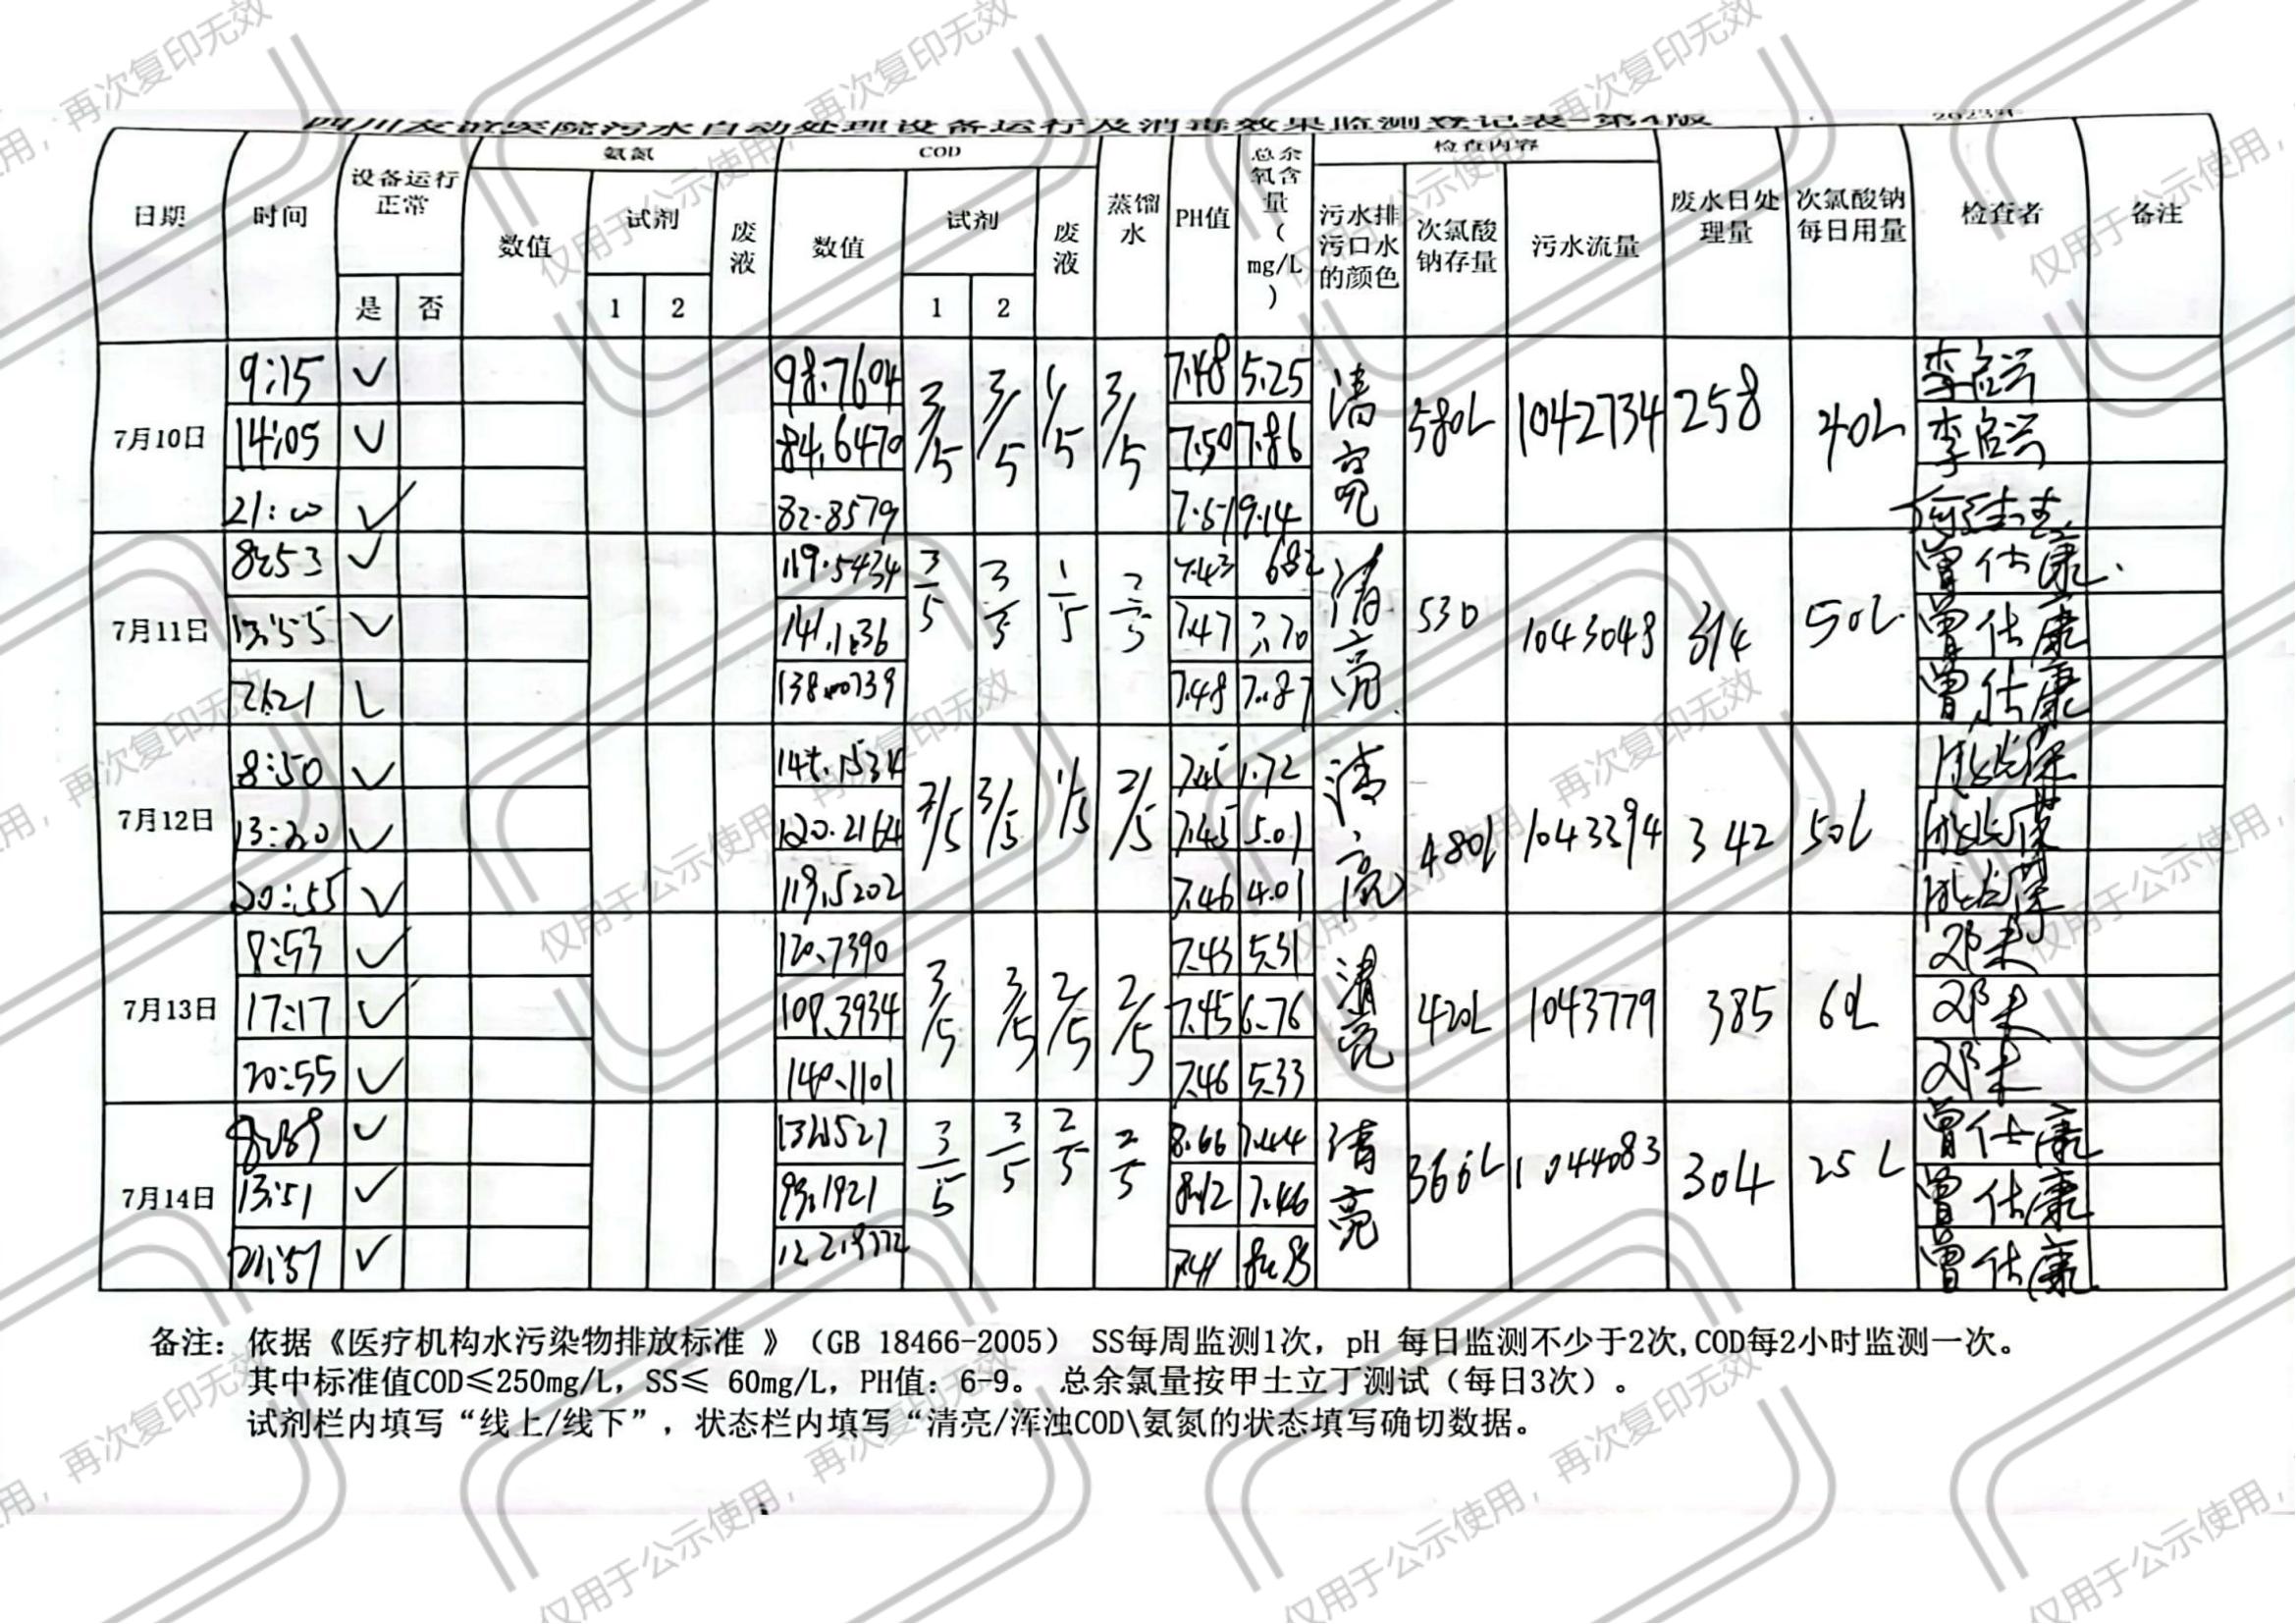 四川友谊医院污水自动处理设备运行及消毒效果监测登记表-第4版
日期 时间 设备运行正常 氨氮 COD 蒸馏水 PH值 总余氧含量(mg/L) 检查内容 废水日处理量 次氯酸钠每日用量 检查者 备注
是 否 数值 试剂 废液 数值 试剂 废液 污水排污口水的颜色 次氯酸钠存量 污水流量
1 2 1 2
7月10日 3/5 3/5 1/5 3/5 清亮 580L 1042734 258 40L
9:15 ✓ 98.7604 7.48 5.25
14:05 ✓ 84.6470 7.50 7.86
21:00 ✓ 82.8579 7.51 9.14
7月11日 3/5 3/5 1/5 2/5 清亮 530 1043048 314 50L
8:53 ✓ 119.5434 7.43 6.82 曾仕康
13:55 ✓ 7.47 曾仕康
21:21 7.48 7.87 曾仕康
7月12日 3/5 1/5 2/5 清亮 480L 1043394 342 50L
8:50 ✓ 7.45 1.72
13:20 ✓ 120.2164 7.45 5.01
20:55 ✓ 119.5202 7.46 4.01
7月13日 3/5 3/5 2/5 2/5 清亮 420L 1043779 385 60L
8:53 ✓ 120.7390 7.43 5.31
17:17 ✓ 109.3934 7.45 6.76
20:55 ✓ 140.1101 7.46 5.33
7月14日 3/5 3/5 2/5 2/5 清亮 360L 1044083 304 25L
✓ 8.66 7.44 曾仕康
13:51 ✓ 93.1921 8.12 7.46 曾仕康
✓ 曾仕康
备注：依据《医疗机构水污染物排放标准 》（GB 18466-2005） SS每周监测1次，pH 每日监测不少于2次,COD每2小时监测一次。
其中标准值COD≤250mg/L，SS≤ 60mg/L，PH值：6-9。 总余氯量按甲土立丁测试（每日3次）。
试剂栏内填写“线上/线下”，状态栏内填写“清亮/浑浊COD\氨氮的状态填写确切数据。
仅用于公示使用，再次复印无效